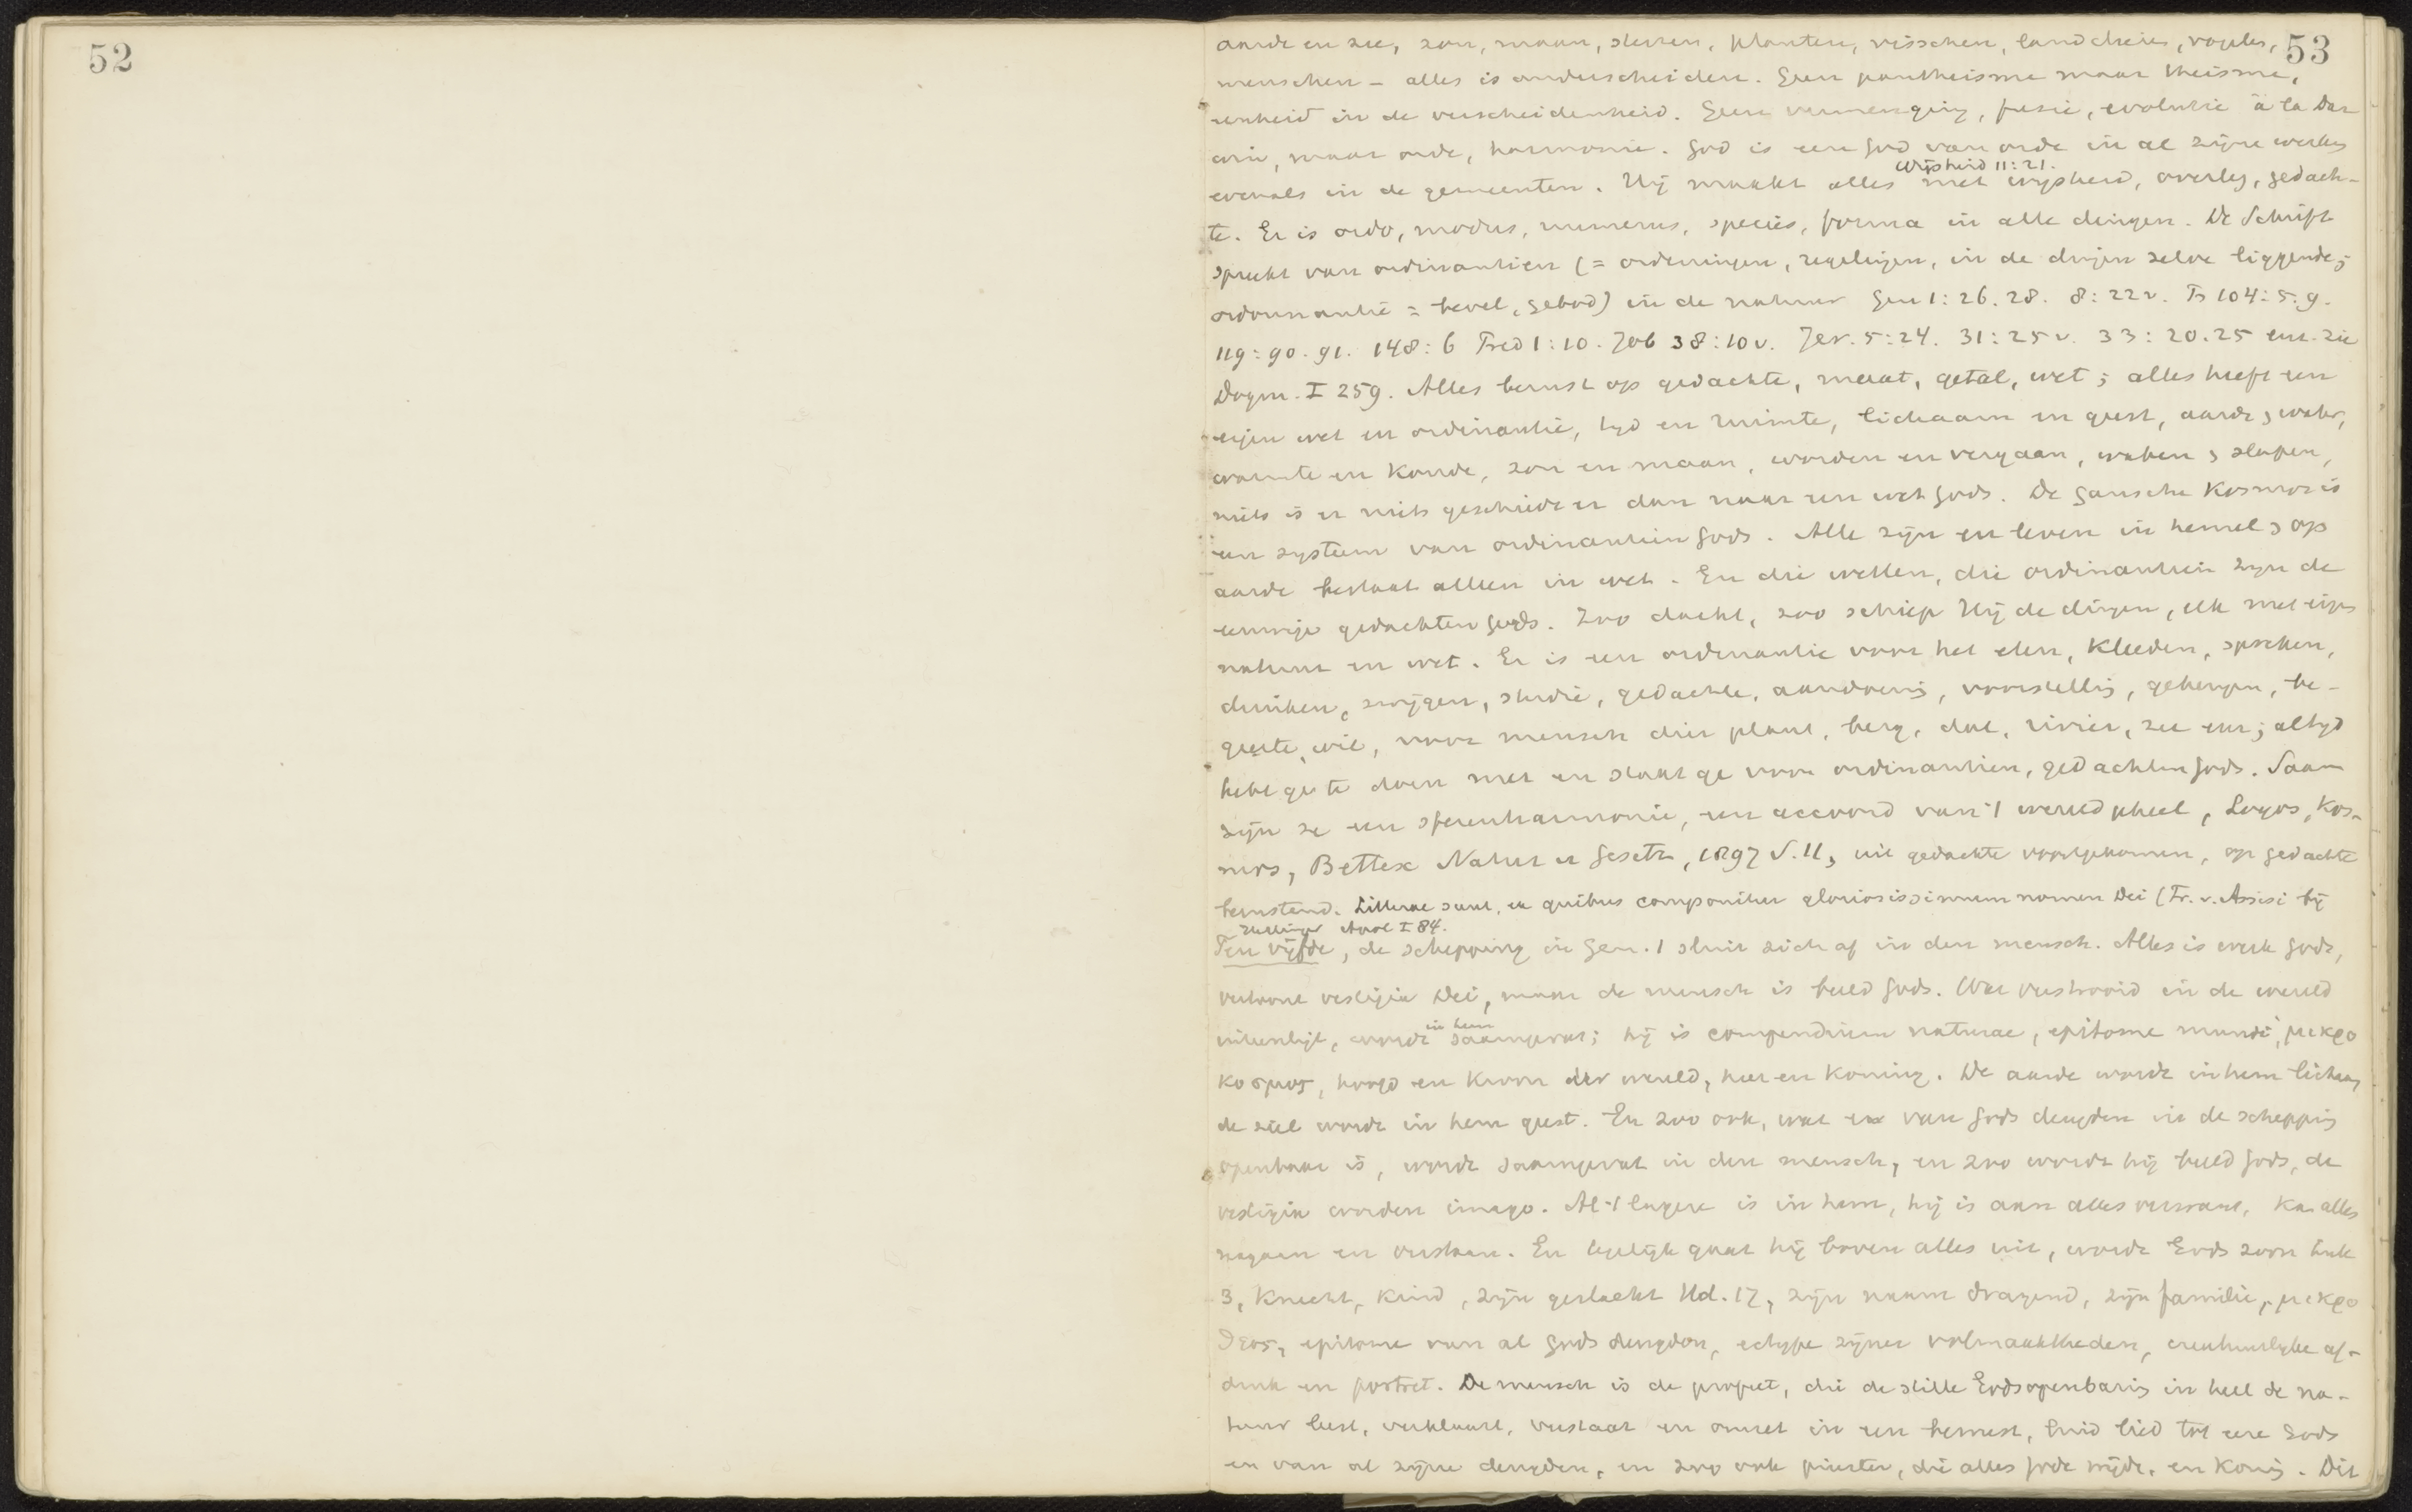 52
53
aarde en zee, zon, maan, sterren, planten, visschen, landdieren, vogels,
menschen – alles is onderscheiden. Geen pantheisme maar theisme,
eenheid in de verscheidenheid. Geen vermenging, fusie, evolutie à la Dar
win, maar orde, harmonie. God is een God van orde in al zijne werken
Wijsheid 11:21.
evenals in de gemeenten. Hij maakt alles met wijsheid, overleg, gedach-
te. Er is ordo, modus, numerus, species, forma in alle dingen. De Schrift
spreekt van ordinantien (= ordeningen, regelingen, in de dingen zelve liggende;
ordonnantie = bevel, gebod) in de natuur Gen 1:26.28. 8:22v. Ps 104:5.9.
119:90.91. 148:6 Pred 1:10. Job 38:10v. Jer. 5:24. 31:25v. 33:20.25 enz. zie
Dogm. I 259. Alles berust op gedachte, maat, getal, wet; alles heeft een
eigen wet en ordinantie, tijd en ruimte, lichaam en geest, aarde, water,
warmte en koude, zon en maan, worden en vergaan, waken, slapen,
niets is er niets geschiedt er dan naar een wet Gods. De gansche Kosmos is
een systeem van ordinantien Gods. Alle zijn en leven in hemel, op
aarde bestaat alleen in wet. En die wetten, die ordinantien zijn de
eeuwige gedachten Gods. Zoo dacht, zoo schiep Hij de dingen, elk met eigen
natuur en wet. Er is een ordinantie voor het eten, kleeden, spreken,
drinken, zwijgen, studie, gedachte, aandoening, voorstelling, geheugen, be-
geerte, wil, voor mensch dier plant, berg, dal, rivier, zee enz; altijd
hebt ge te doen met en staat ge voor ordinantien, gedachten Gods. Saam
zijn ze een sferenharmonie, een accoord van 't wereldgeheel, Logos, Kos-
mos, Bettex Natur u Gesetz, 1897 S. 11, uit gedachte voortgekomen, op gedachte
berustend. Litterae sunt, ex quibus componitur gloriosissimum nomen Dei (Fr. v. Assisi bij
Apol I 84.
Ten vijfde, de schepping in Gen. 1 sluit zich af in den mensch. Alles is werk Gods,
vertoont vestigia Dei, maar de mensch is beeld Gods. Wat verstrooid in de wereld
in hem
uiteenligt, wordt saamgevat; hij is compendium naturae, epitome mundi, μικρο
κοσμος, hoofd en kroon der wereld, heer en koning. De aarde wordt in hem lichaam,
de ziel wordt in hem geest. En zoo ook, wat er van Gods deugden in de schepping
openbaar is, wordt saamgevat in den mensch, en zoo wordt hij beeld Gods, de
vestigia worden imago. Al 't lagere is in hem, hij is aan alles verwant, kan alles
nagaan en verstaan. En tegelijk gaat hij boven alles uit, wordt Gods zoon Luk
3, Knecht, kind, zijn geslacht Hd. 17, zijn naam dragend, zijn familie, μικρο
θεος, epitome van al Gods deugden, ectype zijner volmaaktheden, creatuurlijke af-
druk en portret. De mensch is de profeet, die de stille Godsopenbaring in heel de na-
tuur leest, verklaart, verstaat en omzet in een bewust, luid lied tot eere Gods
en van al zijne deugden, en zoo ook priester, die alles Gode wijdt, en koning. Dit